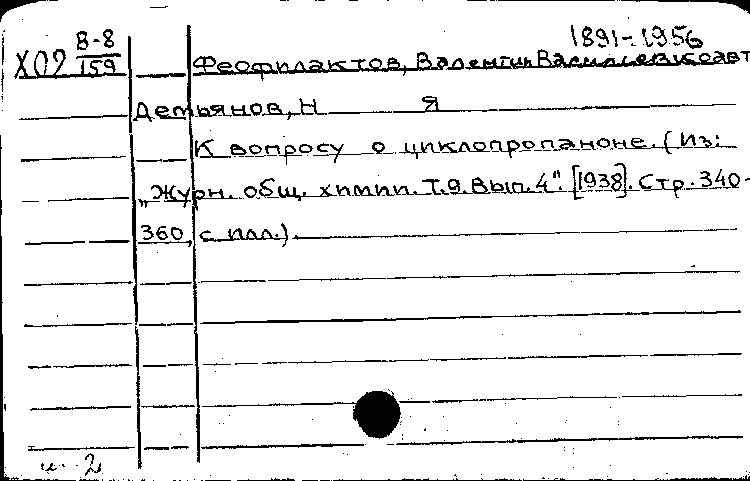 1891-1956
Х02 В-8/159 Феофилактов, Валентин Васильевич соавт
Демьянов, Н Я
К вопросу о циклопропаноне. (Из:
„Журн. общ. химии. Т.9. Вып. 4". [1938]. Стр. 340-
360, с илл.).